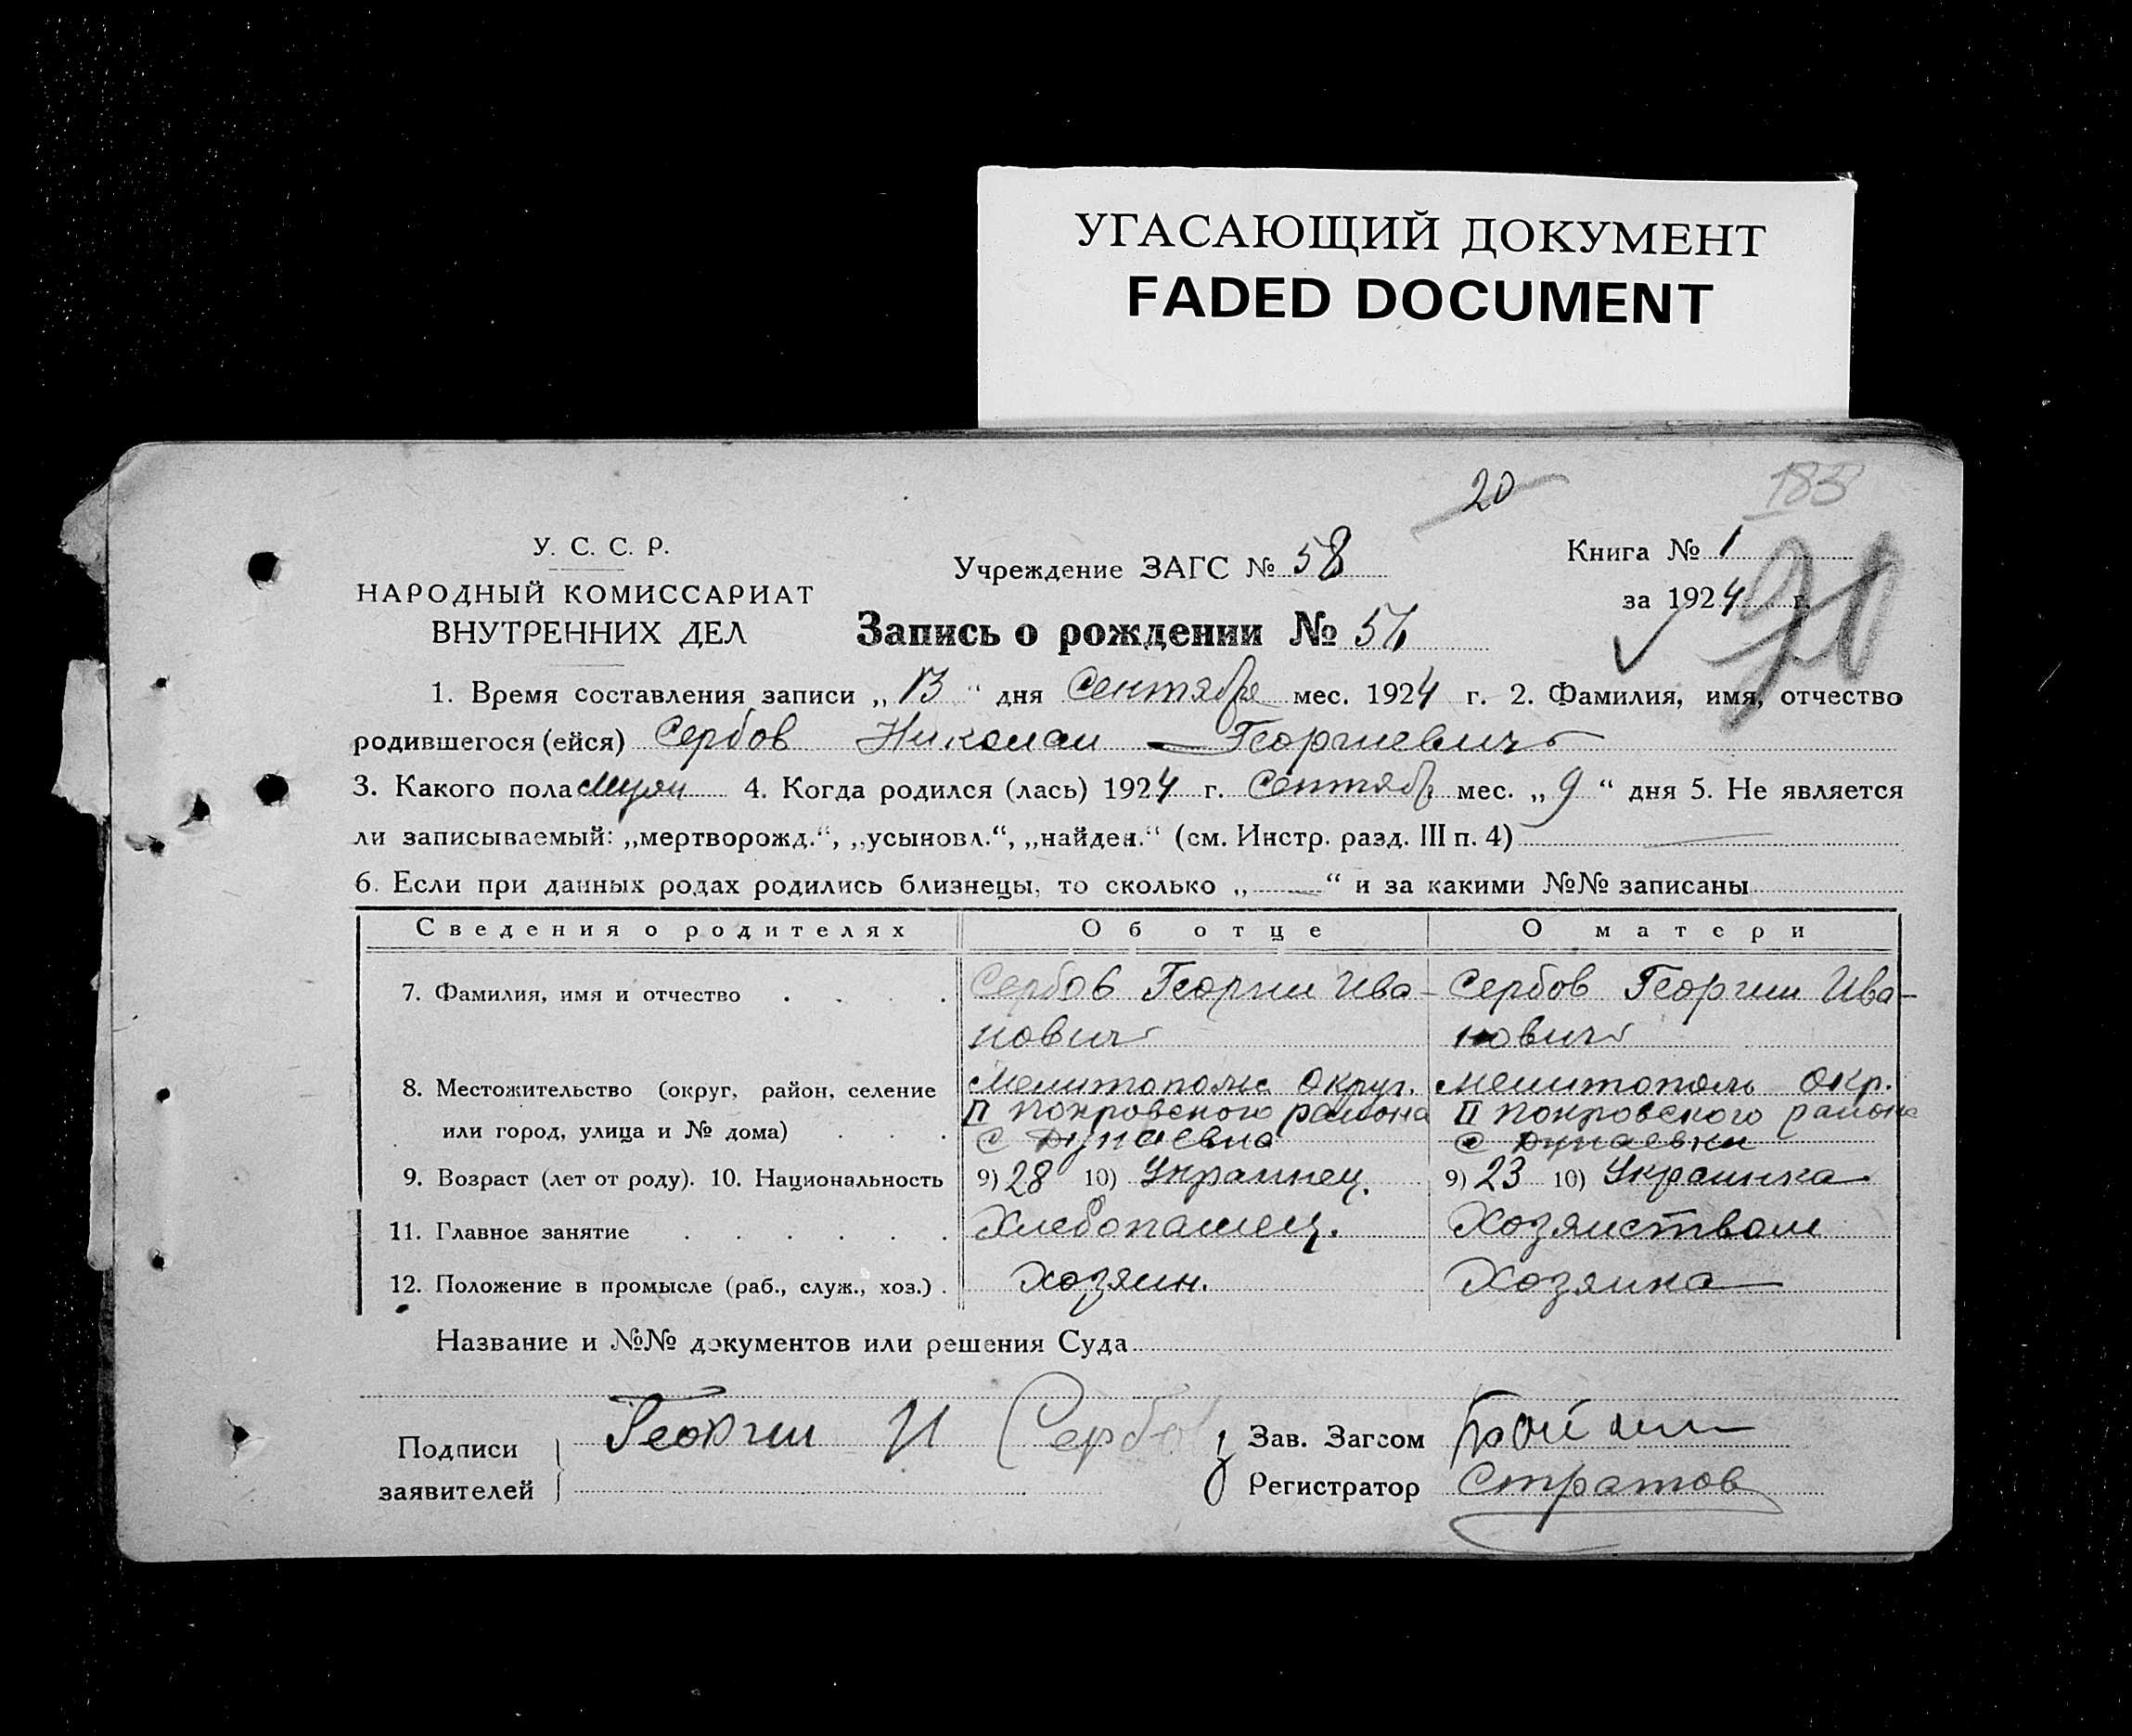 УГАСАЮЩИЙ ДОКУМЕНТ
FADED DOCUMENT
20
183
У. С. С. Р.
НАРОДНЫЙ КОМИССАРИАТ
ВНУТРЕННИХ ДЕЛ
Учреждение ЗАГС № 58
Книга № 1
за 1924 г.
Запись о рождении №
1. Время составления записи „13“ дня Сентября мес. 1924 г. 2. Фамилия, имя, отчество
родившегося (ейся) Сербов Николаи Георгиевич
3. Какого пола Мужи 4. Когда родился (лась) 1924 г. Сентябр мес. „9“ дня 5. Не является
ли записываемый: „мертворожд.“, „усыновл.“, „найден.“ (см. Инстр. разд. III п. 4)
6. Если при данных родах родились близнецы, то сколько „—“ и за какими №№ записаны
Сведения о родителях Об отце О матери
7. Фамилия, имя и отчество Сербов Георгии Ива- Сербов Георгии Ива-
нович нович
8. Местожительство (округ, район, селение Мелитополь Округ. Мелитополь Окр.
или город, улица и № дома) II Покровского района II Покровского района
с Дунаевка с Дунаевки
9. Возраст (лет от роду). 10. Национальность 9) 28 10) Украинец. 9) 23 10) Украинка
11. Главное занятие Хлебопашец. Хозяиством
12. Положение в промысле (раб., служ., хоз.) Хозяин. Хозяика
Название и №№ документов или решения Суда
Подписи заявителей Георгии И Сербов
Зав. Загсом
Регистратор Стратов